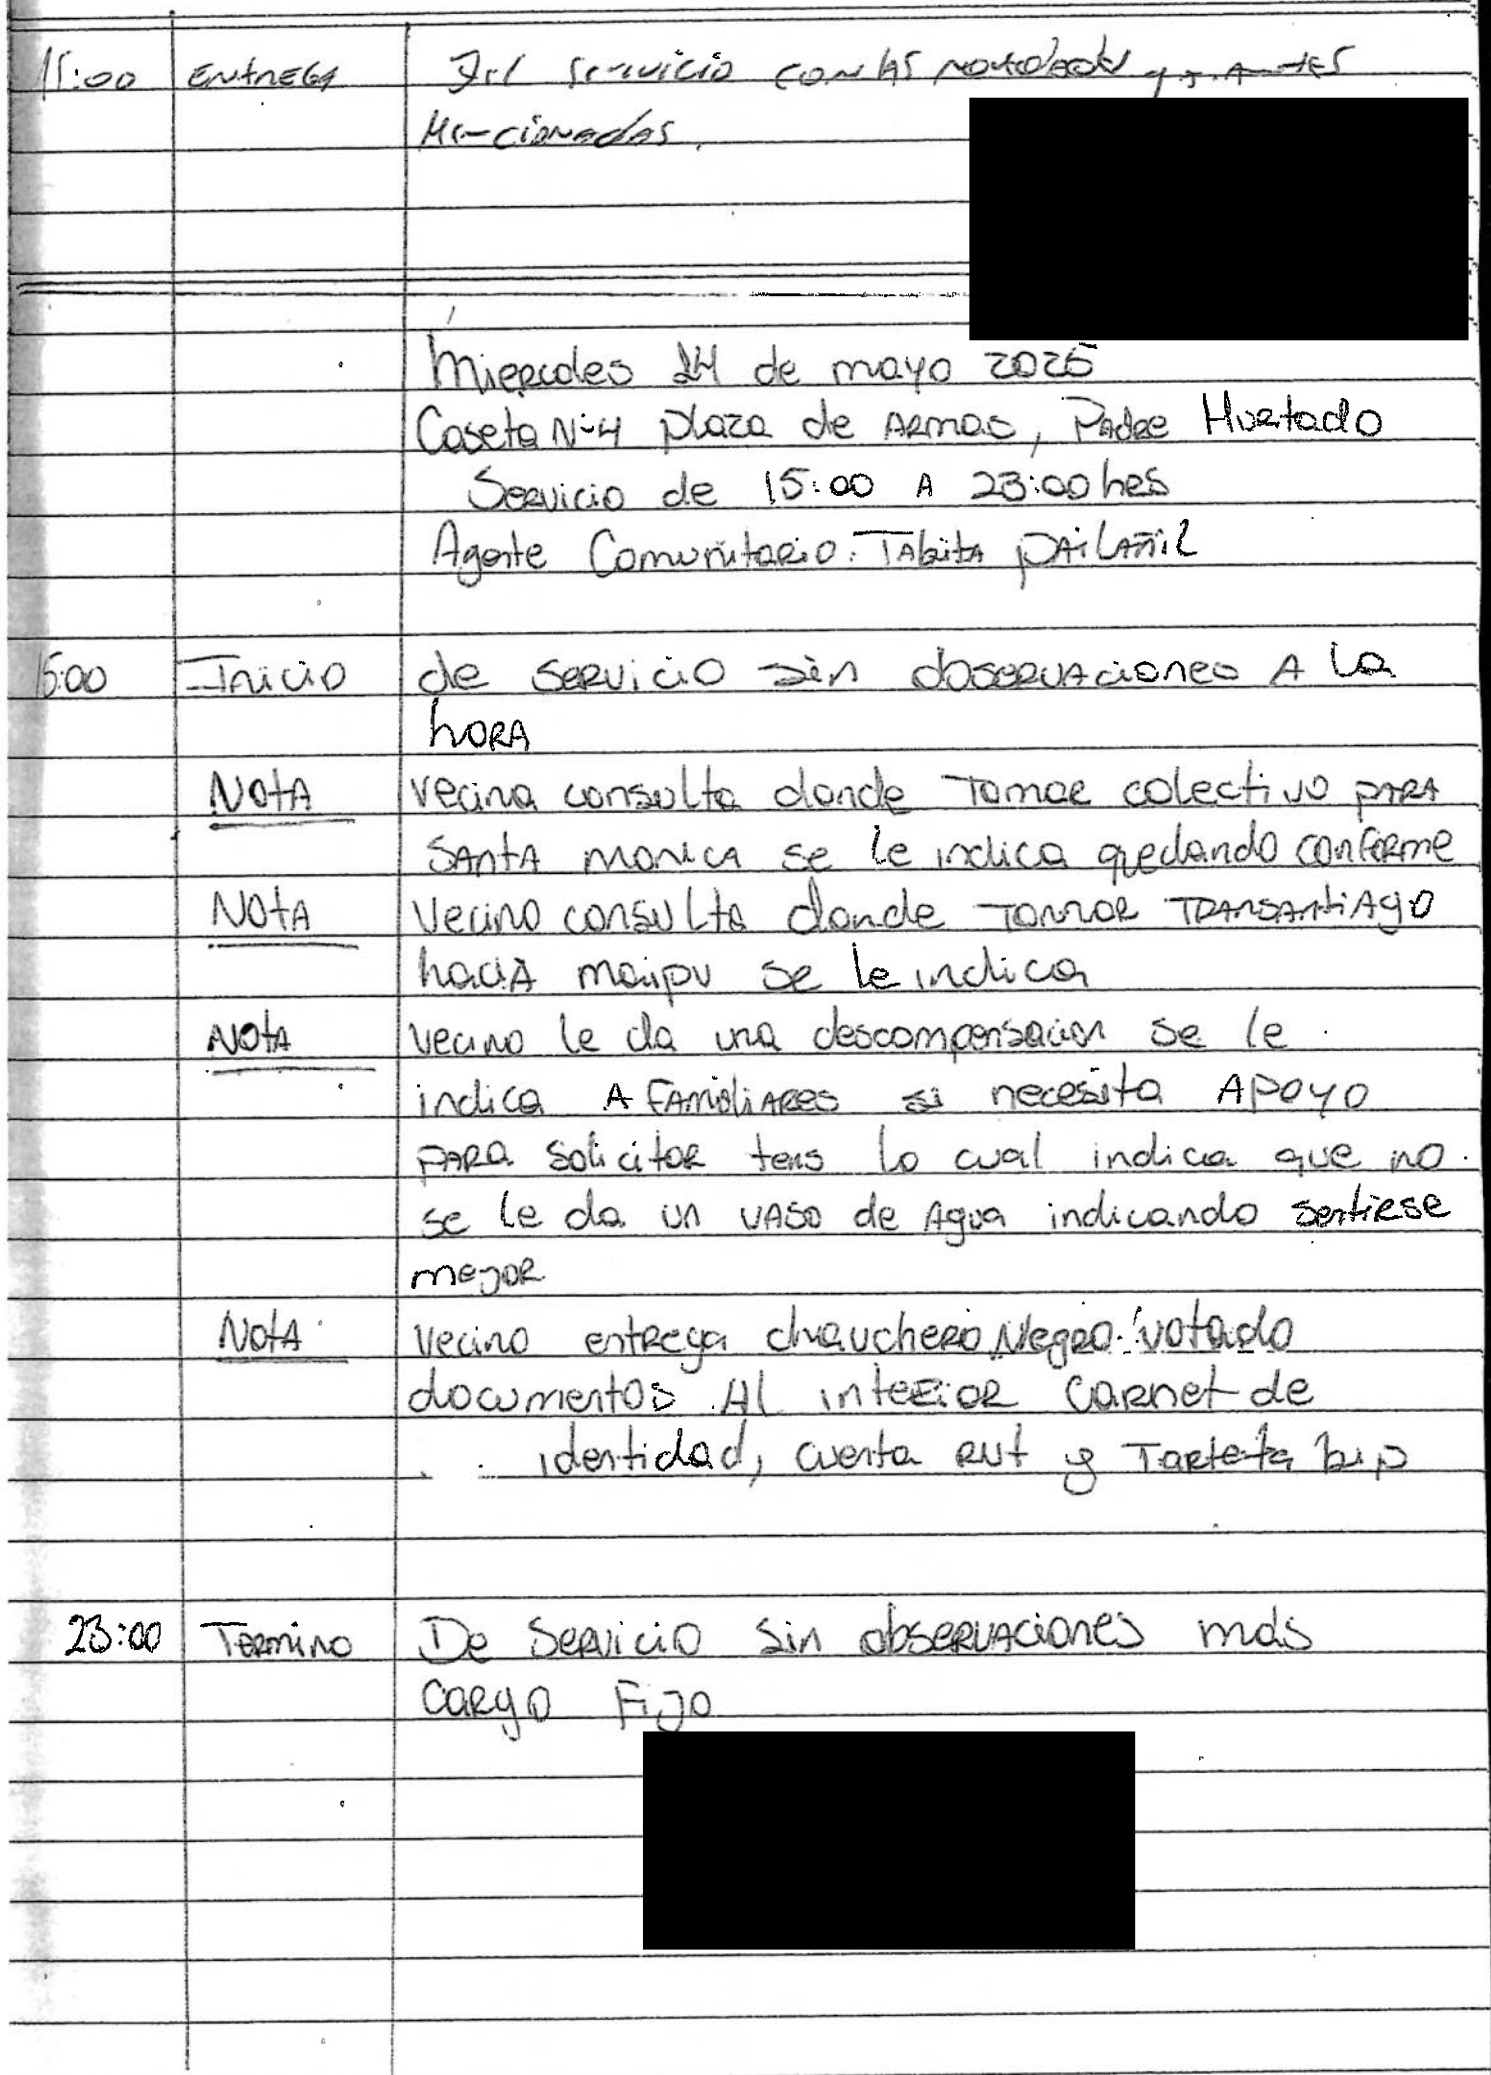 15:00 Entrega Del servicio con las novedades y a antes
Mencionadas.
Miercoles 14 de mayo 2025
Caseta N-4 plaza de Armas, Padre Hurtado
Servicio de 15:00 A 23:00 hrs
Agente Comunitario: Tabita pailañil
15:00 Inicio de servicio sin observaciones A la
hora
Nota vecina consulta donde Tomar colectivo para
Santa monica se le indica quedando conforme
Nota Vecino consulta donde Tomar Transantiago
hacia maipu se le indica
Nota vecino le da una descompensacion se le
indica A Familiares si necesita Apoyo
para solicitar tens lo cual indica que no
se le da un vaso de Agua indicando sentirse
mejor
Nota vecino entrega chauchero Negro votado
documentos Al interior Carnet de
identidad, cuenta rut y Tarjeta bip
23:00 Termino De Servicio Sin observaciones mas
Cargo Fijo